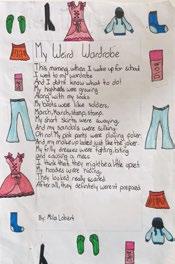 My Weird Wardrobe
This morning when I woke up for school
I went to my wardrobe
And I didn't know what to do!
My highheels were growing
Along with my socks
My boots were like soldiers,
March, March, stomp, stomp.
My short skirts were swaying,
And my sandals were sulking.
Oh no! My pink pants were playing poker
And my makeup looked just like the joker.
My frilly dresses were fighting, biting
and causing a mess
I think that they might be a little upset
My hoodies were
They looked really scared.
After all, they definitely weren't prepared.
By: Mila